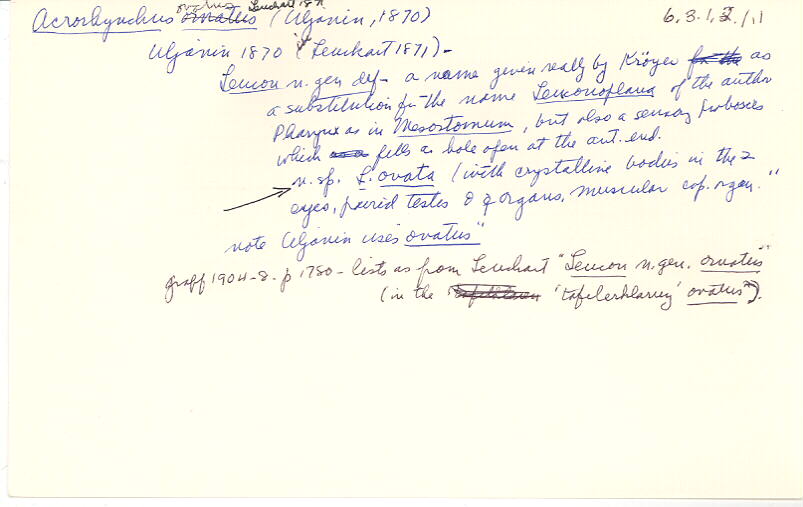 ovatus Leuckart 1871
Acrorhynchus ornatus (Uljanin, 1870) 6.3.1.2.1.1
Uljanin 1870 (Leuckart 1871) -
Leucon n. gen def - a name given really by Kröyer for the as
a substitution for the name Leuconoplana of the author
Pharynx as in Mesostomum, but also a sensory proboscis
which fills a hole open at the ant. end.
n. sp. L. ovata (with crystalline bodies in the 2
eyes, paired testes & ♀ organs, muscular cop. organ."
note Uljanin uses ovatus"
Graff 1904-8 - p 1780 - lists as from Leuckart "Leucon n. gen. ornatus"
(in the 'tafelerklarung' ovatus").